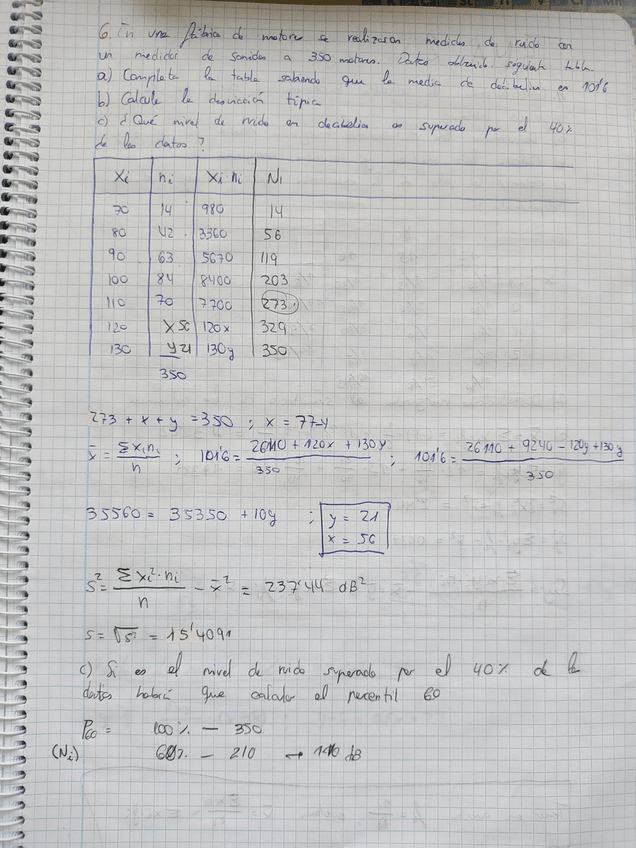 6. En una fábrica de motores se realizaron medidas de ruido con
un medidor de sonidos a 350 motores. Datos obtenidos siguiente tabla.
a) Completa la tabla sabiendo que la media de decibelios es 101'6
b) Calcule la desviación típica
c) ¿Qué nivel de ruido en decibelios es superado por el 40%
de los datos?
Xi ni Xi·ni Ni
70 14 980 14
80 42 3360 56
90 63 5670 119
100 84 8400 203
110 70 7700 273
120 X 56 120x 329
130 y 21 130y 350
350
273 + x + y = 350 ; x = 77-y
x̄ = Σxini/n ; 101'6 = 26110 + 120x + 130y/350 ; 101'6 = 26110 + 9240 - 120y + 130y/350
35560 = 35350 + 10y ; y = 21
x = 56
S² = Σxi²·ni/n - x̄² = 237'44 dB²
s = √s² = 15'4091
c) Si es el nivel de ruido superado por el 40% de los
datos habrá que calcular el percentil 60
P60 = 100% — 350
(Ni) 60% — 210 → 110 dB